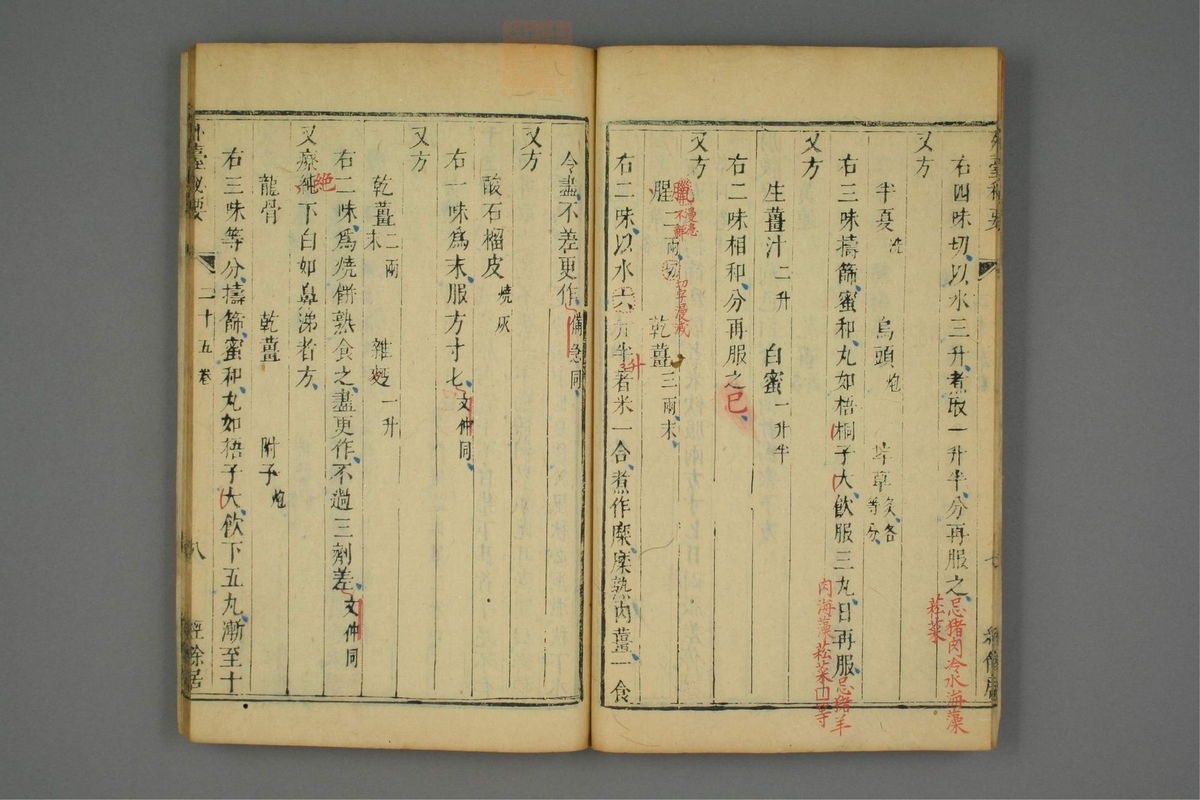 外臺秘要
右四味切以水三升煮取一升半分再服之忌猪肉冷水海藻
菘菜
又方
半夏洗 烏頭炮 甘草炙各等分
右三味擣篩蜜和丸如梧桐子大飲服三丸日再服忌猪羊
肉海藻菘菜
又方
生薑汁二升 白蜜一升半
右二味相和分再服之
又方
腥二兩切 乾薑三兩末
臘
切字及戒
右二味以水六升半著米一合煮作糜糜熟内薑一食
升
令盡不差更作備急同
又方
酸石榴皮燒灰
右一味爲末服方寸七文仲同
又方
乾薑二兩末 雜麪一升
右二味爲燒餅熟食之盡更作不過三劑差文仲同
又療純下白如鼻涕者方
絶
龍骨 乾薑 附子炮
右三味等分擣篩蜜和丸如梧子大飲下五丸漸至十
外臺秘要 二十五卷 八 經餘居